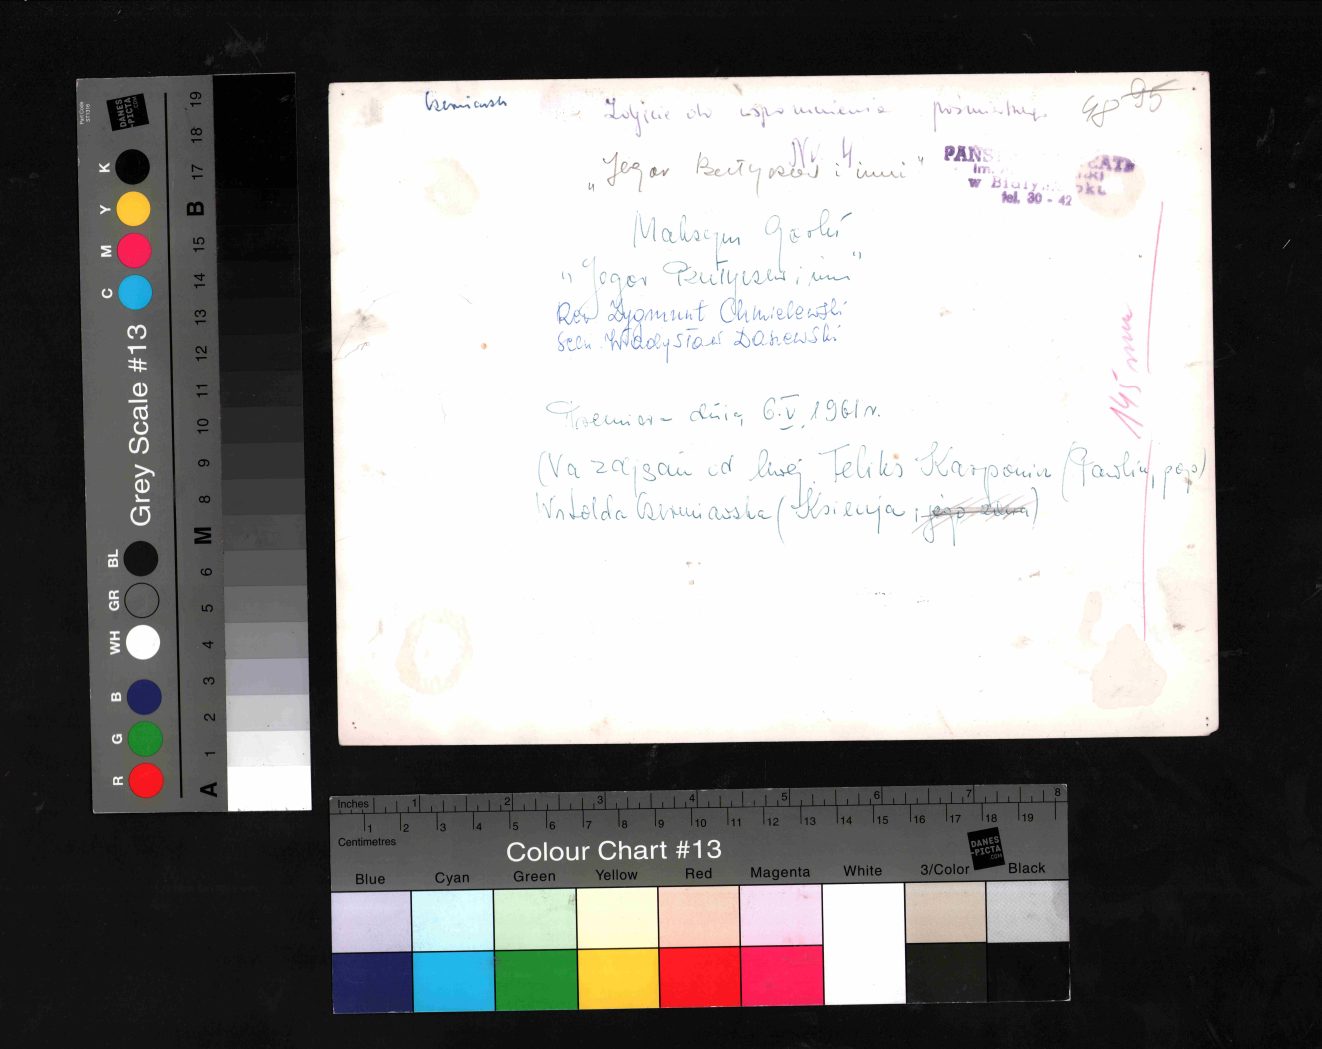 Czerniawsk
Zdjęcie do wspomnienia pośmiertnego
95
Nr 4
„Jegor Bułyczow i inni"
PAŃS
w Białymstoku
tel. 30 - 42
Maksym Gorki
„Jegor Bułyczow i inni"
Reż Zygmunt Chmielewski
Scen. Władysław Daszewski
Premiera dnia 6.V.1961r.
145 mm
(Na zdjęciu od lewej Feliks Karponiu (Pawlin, pop)
Witolda Czerniawska (Ksienija, jego żona)
Part Code
ST1316
DANES
-PICTA
.COM
Grey Scale #13
K Y M C
BL GR WH B G R
A 1 2 3 4 5 6 M 8 9 10 11 12 13 14 15 B 17 18 19
Inches 1 2 3 4 5 6 7 8
1 2 3 4 5 6 7 8 9 10 11 12 13 14 15 16 17 18 19
Centimetres
Colour Chart #13
DANES
-PICTA
.COM
Blue Cyan Green Yellow Red Magenta White 3/Color Black